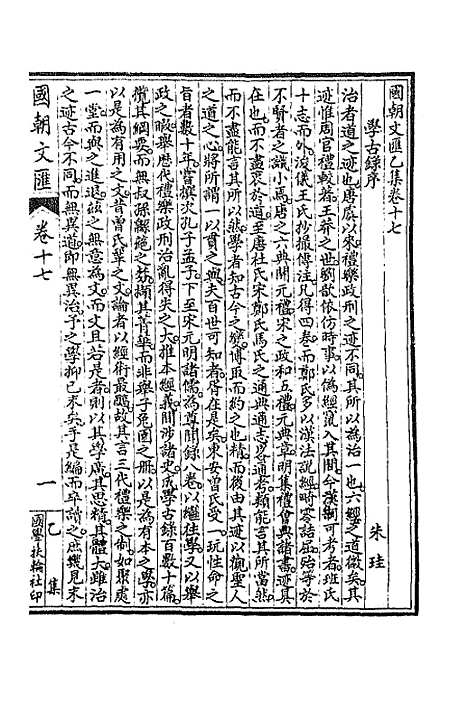 國朝文匯乙集卷十七
學古錄序
朱珪
治者道之迹也唐虞以來禮樂政刑之迹不同其所以為治一也六經之道微矣其
迹惟周官禮較著王莽之世劉歆依仿時事以偽經竄入其間今漢制可考者班氏
十志而外後儀王氏抄撮傳注凡得四卷而鄭氏多以漢法說經時零詁屈殆等於
不賢者之識小焉唐之六典開元禮宋之政和五禮元典章明集禮會典諸書迹具
在也而不盡衷於道唐杜氏宋鄭氏馬氏之通典通志通考類能言其所當然
而不盡能言其所以然學者知古今之變博取而約之也後由其迹以觀聖人
之道之心將所謂一以貫之與夫百世可知者胥在是矣東安曾氏受一玩性命之
旨者數十年嘗撰次孔子孟子下至宋元明諸儒為尊聞錄八卷以繼往學又以舉
政之暇舉歷代禮樂政刑治亂得失之大推本經義間涉諸史成學古錄百數十篇
儻其綱要而無叔孫緜蕝之芬擷其菁華而非舉子兔園之冊以是為有本之學亦
以是為有用之文昔曾氏鞏之文論者以經術最醇故其言三代禮樂之制如聚處
一堂而與之進退茲之無意為文而文且若是者則以其學廣其思精其體大雖治
之迹古今不同而無異道即無異治予之學抑已末矣于是編而卒讀之庶幾見末
國朝文匯
卷十七
一
乙集
國學扶輪社印